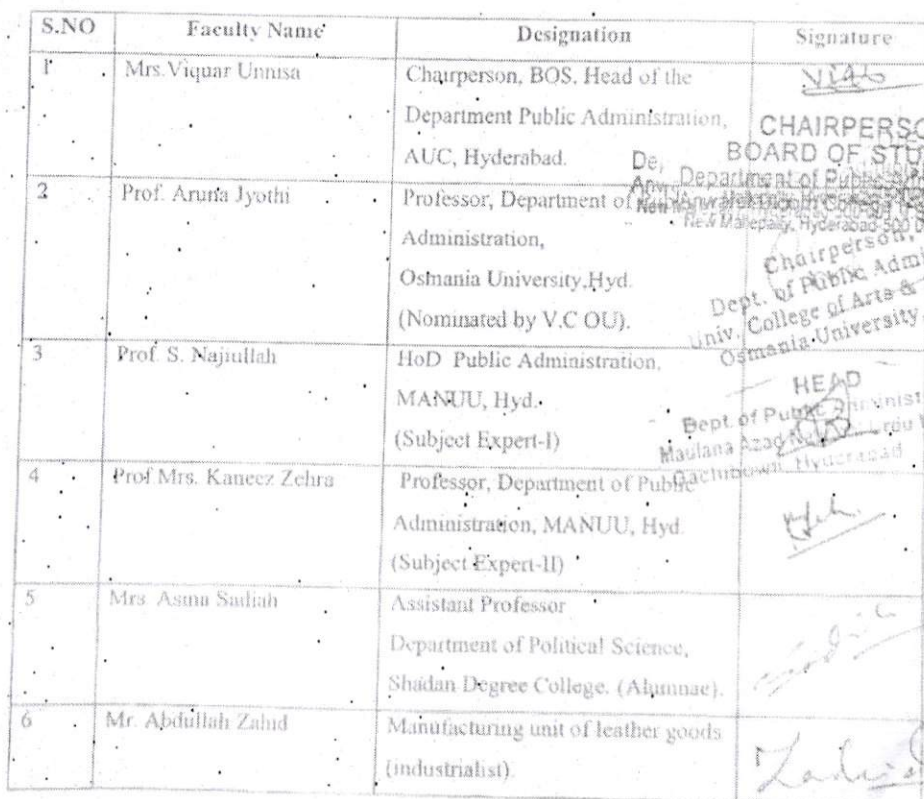 S.NO Faculty Name Designation Signature
1 Mrs.Viquar Unnisa Chairperson, BOS, Head of the
Department Public Administration,
AUC, Hyderabad.
CHAIRPERSO
BOARD OF STU
Department of Public
New Mallepally, Hyderabad-500 0
2 Prof. Aruna Jyothi Professor, Department of
Administration,
Osmania University,Hyd.
(Nominated by V.C OU).
Chairperson,
Dept. of Public Admi
Univ. College of Arts &
Osmania University
3 Prof. S. Najiullah HoD Public Administration,
MANUU, Hyd.
(Subject Expert-I)
HEAD
Dept. of Public
Maulana Azad
Gachibowli, Hyderabad
4 Prof Mrs. Kaneez Zehra Professor, Department of Public
Administration, MANUU, Hyd.
(Subject Expert-II)
5 Mrs Asma Sadiah Assistant Professor
Department of Political Science,
Shadan Degree College. (Alumnae).
6 Mr. Abdullah Zahid Manufacturing unit of leather goods
(industrialist).